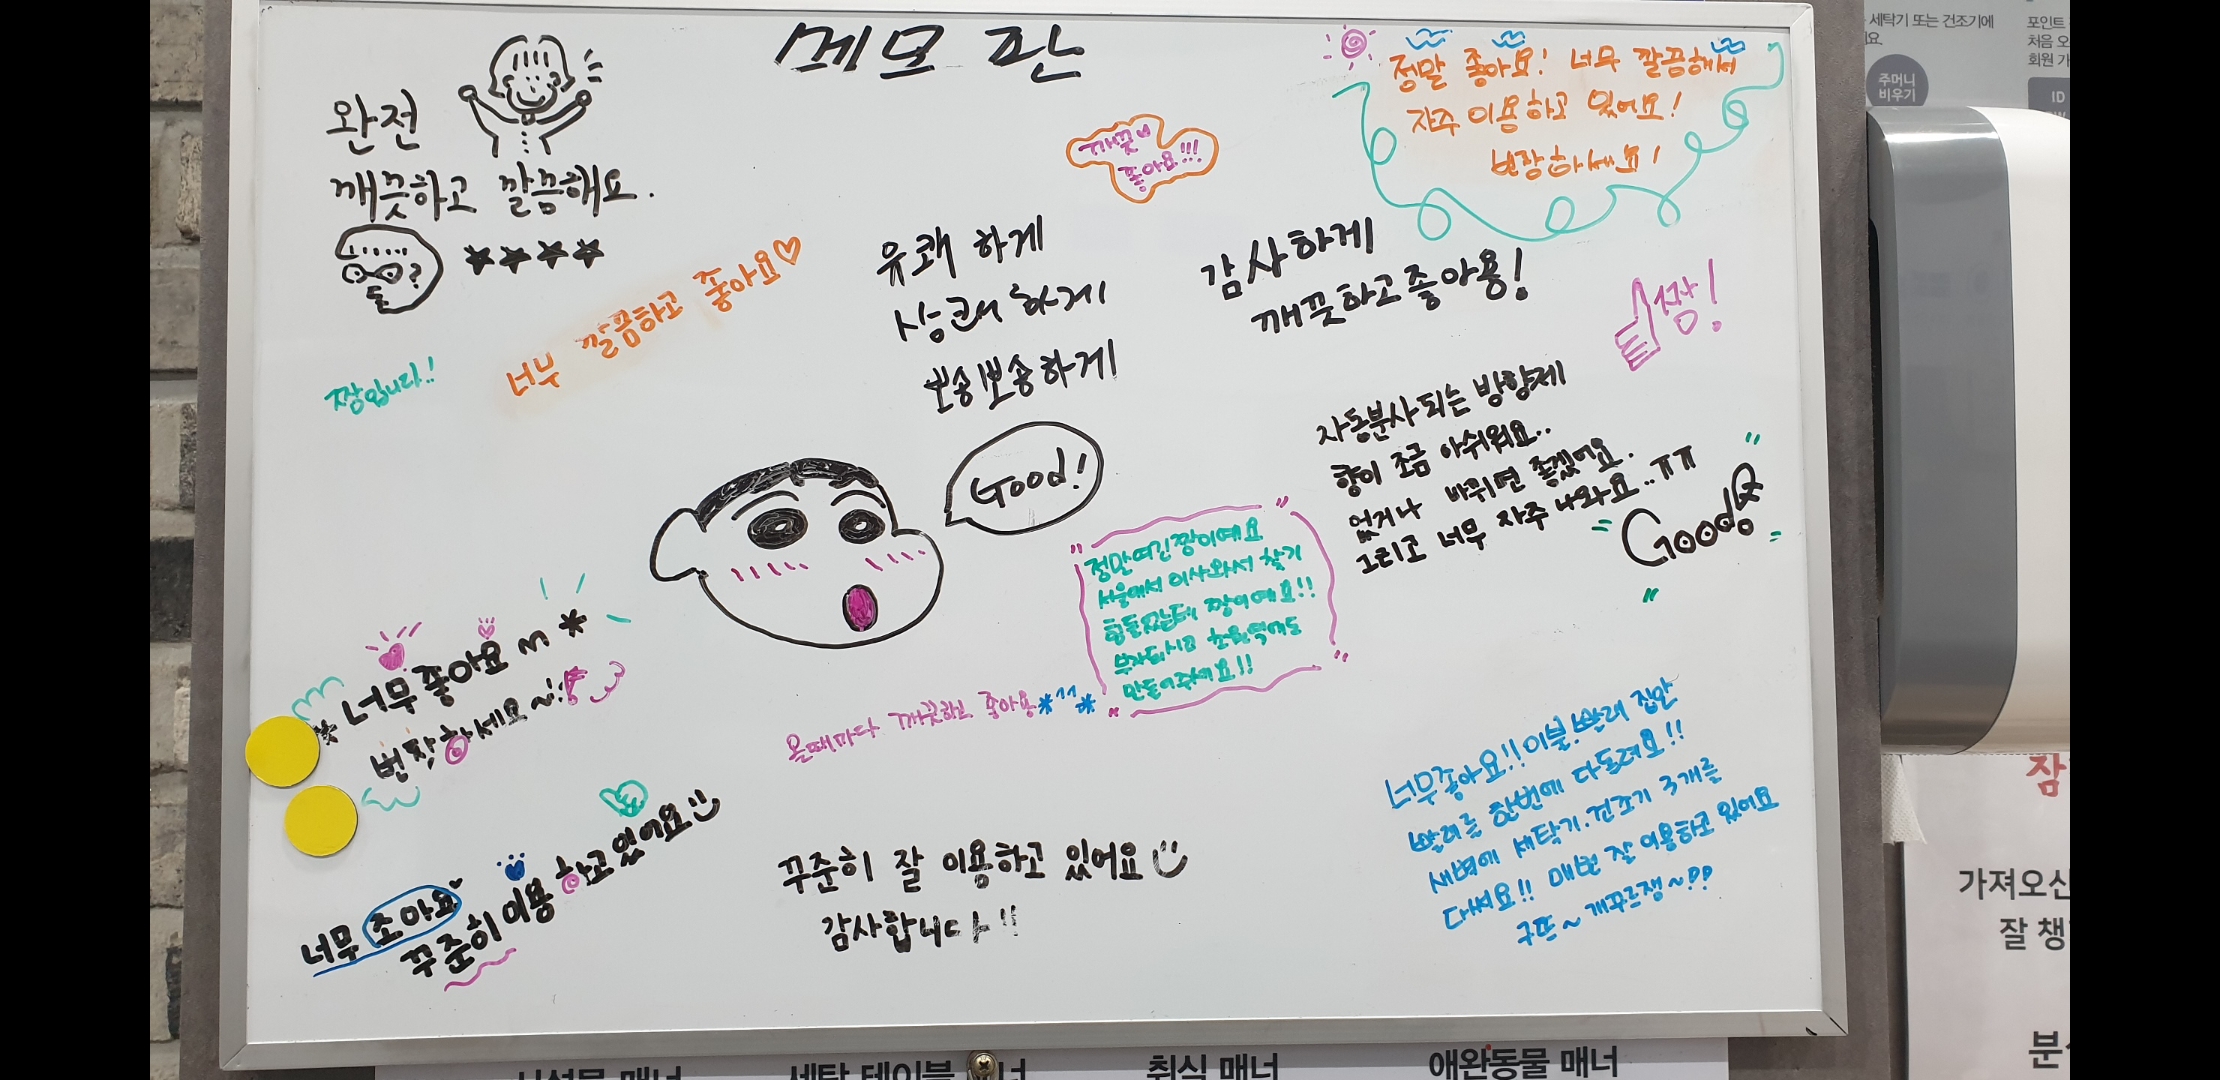 메모판
완전
깨끗하고 깔끔해요.
짱입니다!
너무 깔끔하고 좋아요♡
유쾌하게
상쾌하게
뽀송뽀송하게
Good!
깨끗♥
좋아요!!!
정말 좋아요! 너무 깔끔해서
자주 이용하고 있어요!
번창하세요!
감사하게
깨끗하고 좋아용!
짱!
자동분사되는 방향제
향이 조금 아쉬워요..
없거나 바뀌면 좋겠어요.
그리고 너무 자주 나와요..ㅠㅠ
Good
정말여긴짱이예요
서울에서 이사와서 찾기
힘들었는데 짱이예요!!
부자되시고
만들어줘요!!
올때마다 깨끗하고 좋아용*^^*
*너무좋아요 m *
번창하세요~!
너무 조아요
꾸준히 이용하고 있어요
꾸준히 잘 이용하고 있어요
감사합니다!!
너무좋아요!! 이불.빨래 집안
빨래를 한번에 다돌려요!!
새벽에 세탁기.건조기 3개를
다써요!! 매번 잘 이용하고 있어요
굿뜨~
세탁기 또는 건조기에
요.
포인트
처음 오
회원 가
주머니
비우기
ID
잠
가져오신
잘 챙
분
시설물 매너
세탁 테이블 매너
취식 매너
애완동물 매너